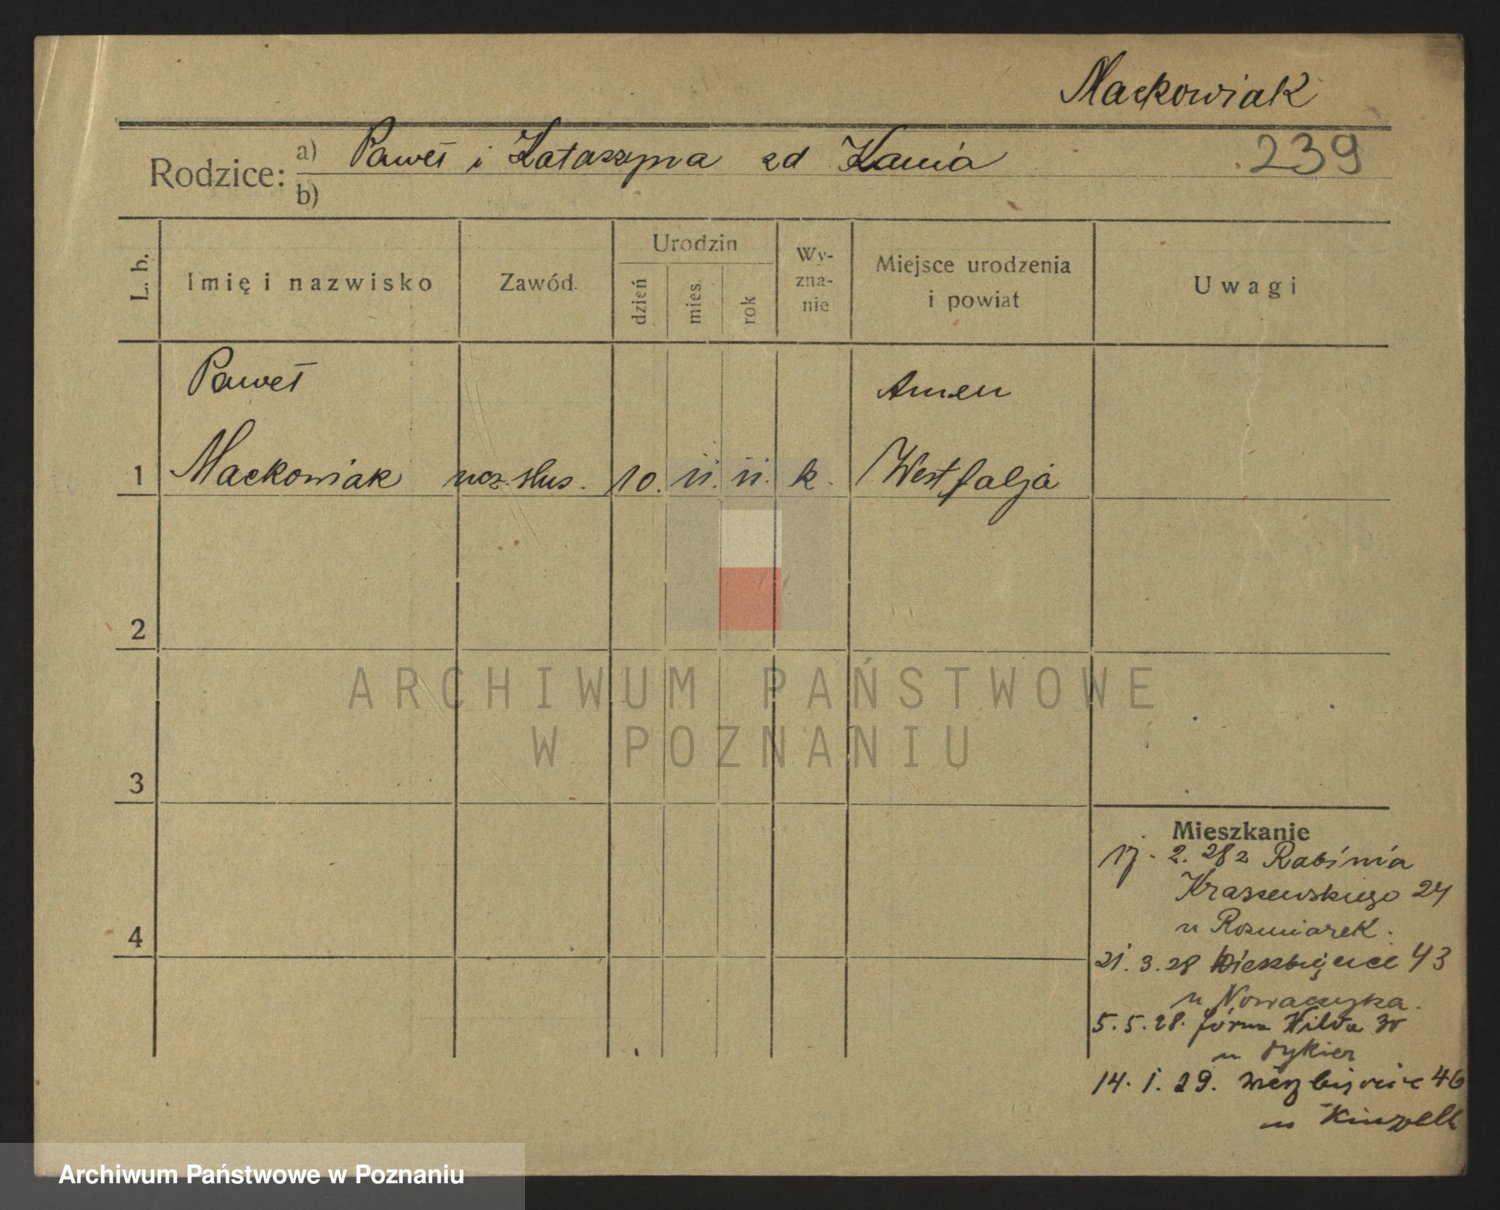 Maćkowiak
239
Rodzice: a) Paweł i Katarzyna zd Kania
b)
L. b. Imię i nazwisko Zawód. Urodzin dzień mies. rok Wyznanie Miejsce urodzenia i powiat Uwagi
Paweł Amen
1 Maćkowiak ucz. slus. 10. 11. 11. k. Westfalja
2
ARCHIWUM PAŃSTWOWE
W POZNANIU
3
Mieszkanie
17. 2. 28 z Rabinia
Kraszewskiego 24
u Rozmiarek.
4
21. 3. 28 Wierzbięcice 43
u Nowaczyka.
5. 5. 28. Górna Wilda
u
14. 1. 29. Wierzbięcice 46
u
Archiwum Państwowe w Poznaniu